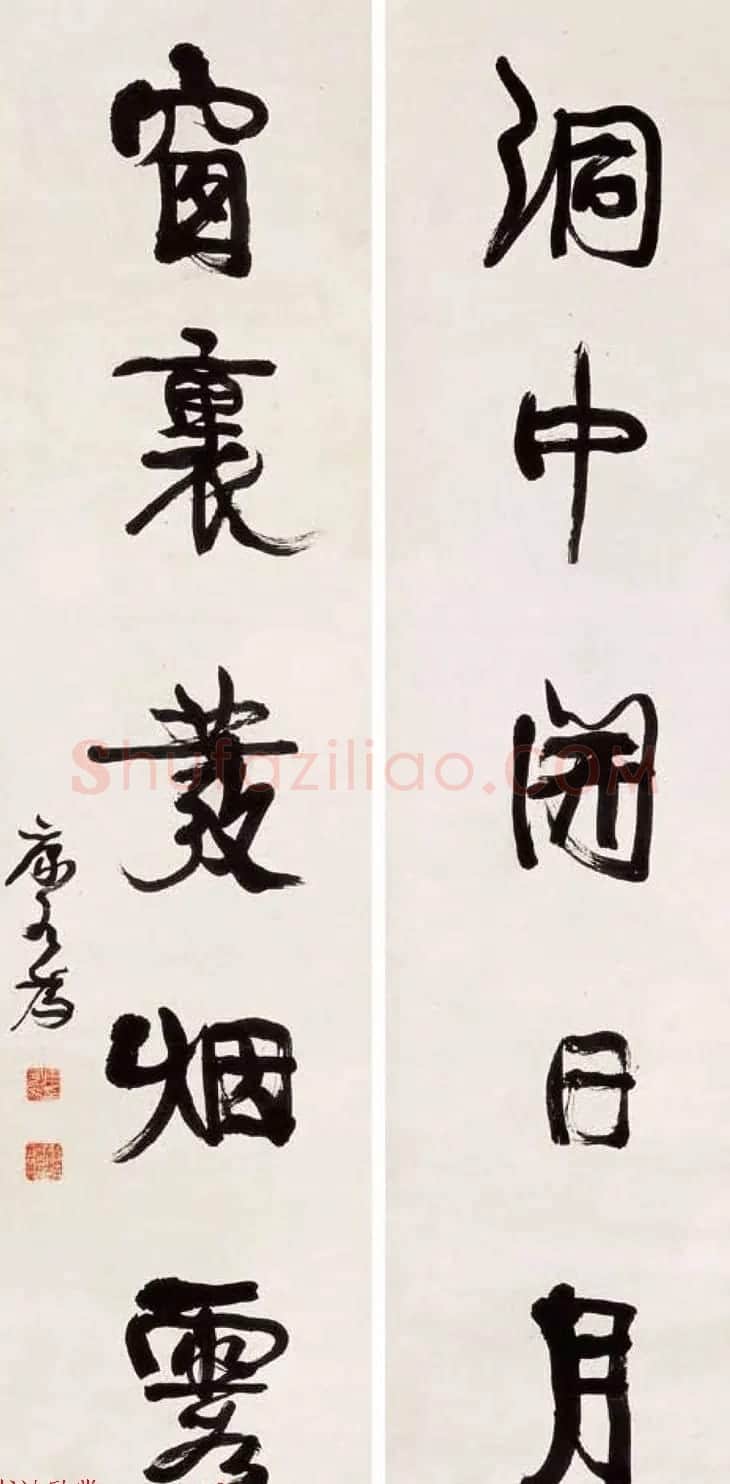 洞中開日月
窗裏發烟
康有為
Shufaziliao.COM